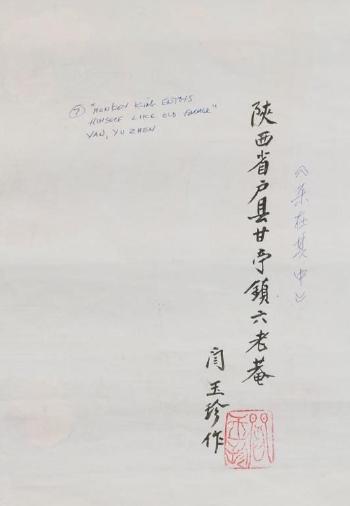 ⑦ "MONKEY KING ENJOYS
HIMSELF LIKE OLD FARMER"
YAN, YU ZHEN
《乐在其中》
陕西省户县甘亭鎮六老菴
闫玉珍作